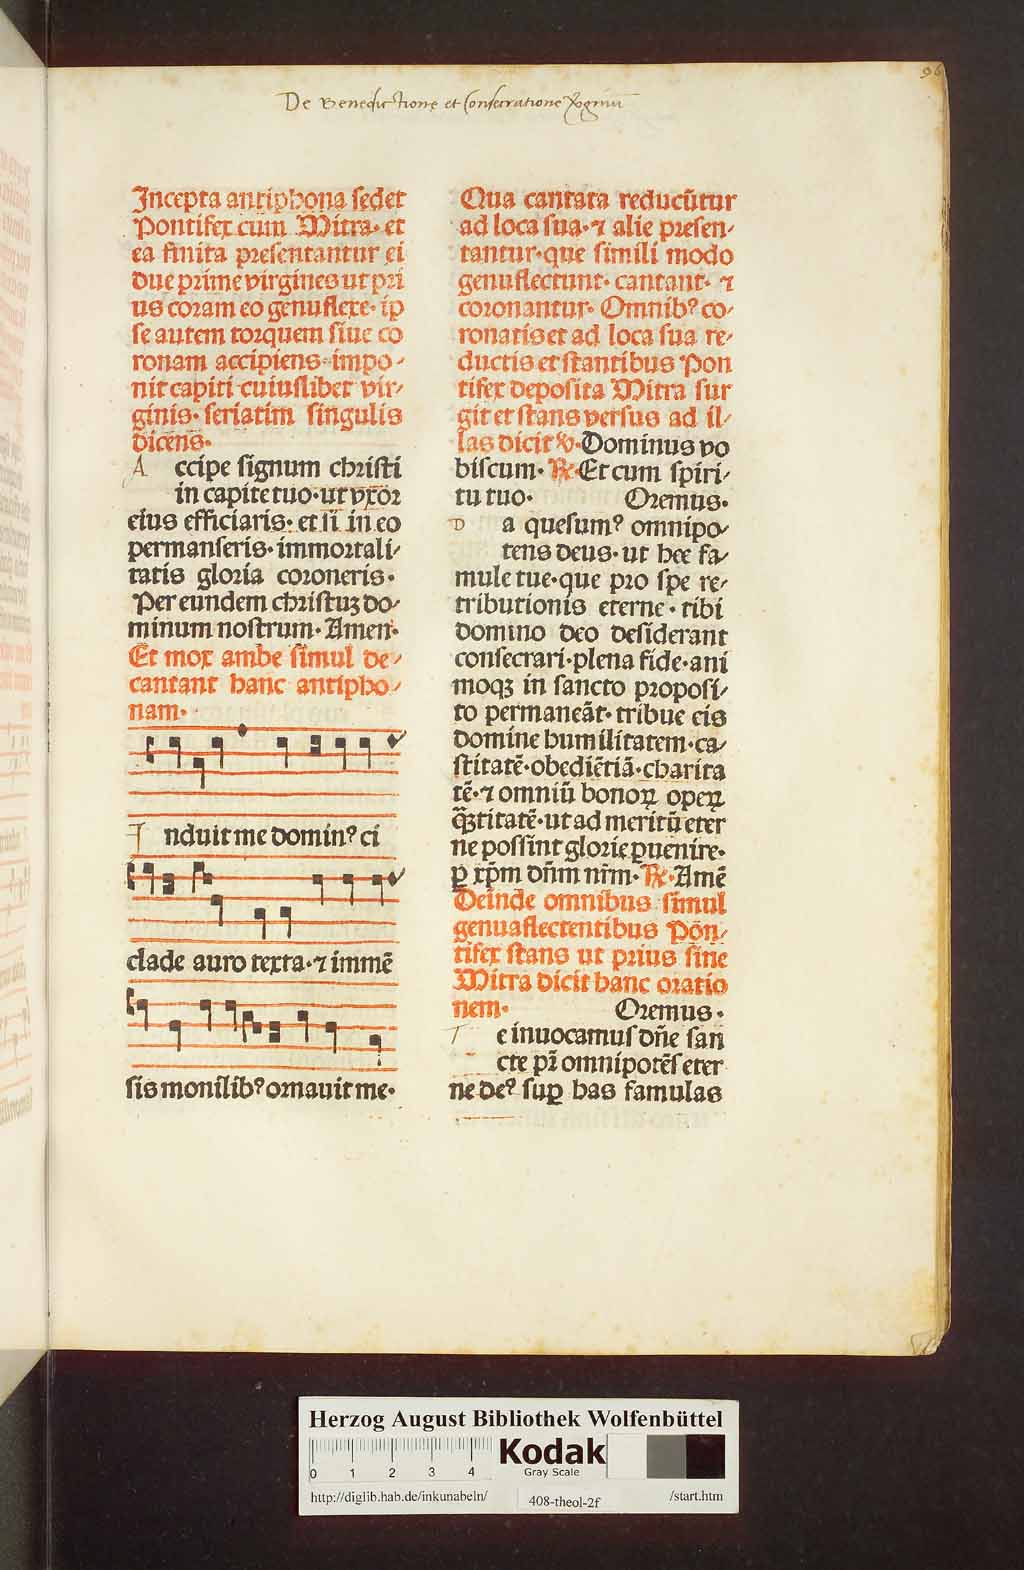 96
De Benedictione et Consecratione Vᵒginum
Incepta antiphona sedet
Pontifex cum Mitra· et
ea finita presentantur ei
due prime virgines ut pri
us coram eo genuflexe· ip
se autem torquem siue co
ronam accipiens· impo-
nit capiti cuiuslibet vir-
ginis· seriatim singulis
dicens·
A ccipe signum christi
in capite tuo· ut vxor
eius efficiaris· et si in eo
permanseris· immortali-
tatis gloria coroneris·
Per eundem christuꝫ do-
minum nostrum· Amen·
Et mox ambe simul de-
cantant hanc antipho-
nam·
I nduit me dominꝰ ci
clade auro texta· ⁊ immē
sis monilibꝰ ornauit me·
Qua cantata reducūtur
ad loca sua· ⁊ alie presen-
tantur· que simili modo
genuflectunt· cantant· ⁊
coronantur· Omnibꝰ co-
ronatis et ad loca sua re-
ductis et stantibus Pon
tifex deposita Mitra sur
git et stans versus ad il-
las dicit ℣· Dominus vo
biscum· ℟· Et cum spiri-
tu tuo· Oremus·
D a quesumꝰ omnipo-
tens deus· ut hee fa-
mule tue· que pro spe re-
tributionis eterne· tibi
domino deo desiderant
consecrari· plena fide· ani
moqꝫ in sancto proposi-
to permaneāt· tribue eis
domine humilitatem· ca-
stitatē· obediētiā· charita
tē· ⁊ omniū bonoꝝ opeꝝ
q̄ꝫtitatē· ut ad meritū eter
ne possint glorie ꝑuenire·
ꝑ xp̄m dn̄m nr̄m· ℟· Amē
Deinde omnibus simul
genuaflectentibus Pon-
tifex stans ut prius sine
Mitra dicit hanc oratio
nem· Oremus·
T e inuocamus dn̄e san
cte pr̄ omnipotēs eter
ne deꝰ suꝑ has famulas
Herzog August Bibliothek Wolfenbüttel
0 1 2 3 4
Kodak
Gray Scale
http://diglib.hab.de/inkunabeln/ 408-theol-2f /start.htm